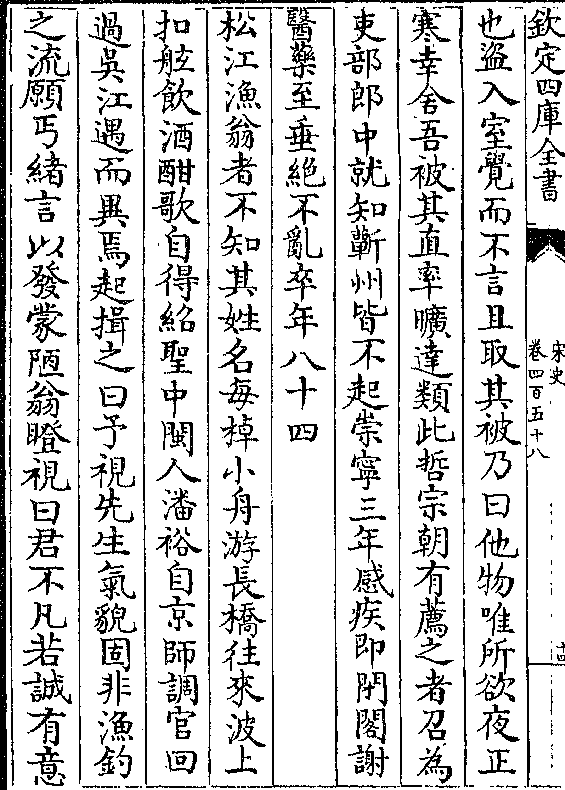 欽定四庫全書
宋史
卷四百五十八
十四
也盜入室覺而不言且取其被乃曰他物唯所欲夜正
寒幸舍吾被其直率曠達類此哲宗朝有薦之者召為
吏部郎中就知蘄州皆不起崇寧三年感疾即閉閣謝
醫藥至垂絶不亂卒年八十四
松江漁翁者不知其姓名每棹小舟游長橋往來波上
扣舷飲酒酣歌自得紹聖中閩人潘裕自京師調官回
過吳江遇而異焉起揖之曰予視先生氣貌固非漁釣
之流願丐緒言以發蒙陋翁瞪視曰君不凡若誠有意